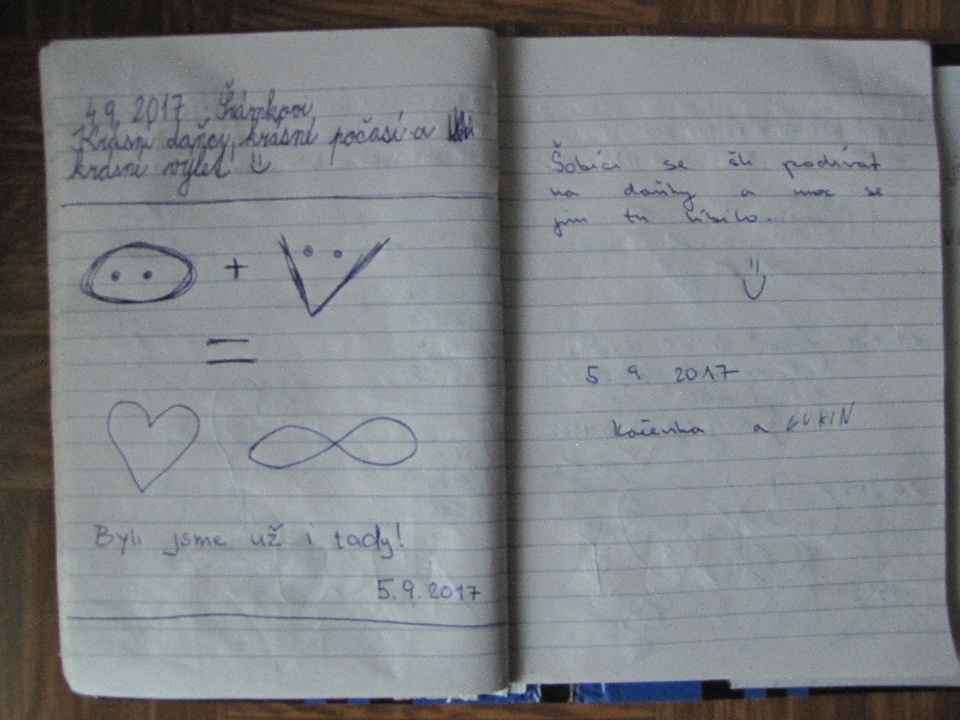 4.9. 2017 Šrámkovi
Krásní daňci, krásné počasí a
krásní výlet!
+
=
Byli jsme už i tady!
5.9.2017
Šobíci se šli podívat
na daňky a moc se
jim tu líbilo.
5. 9. 2017
Kačenka a LUKIN